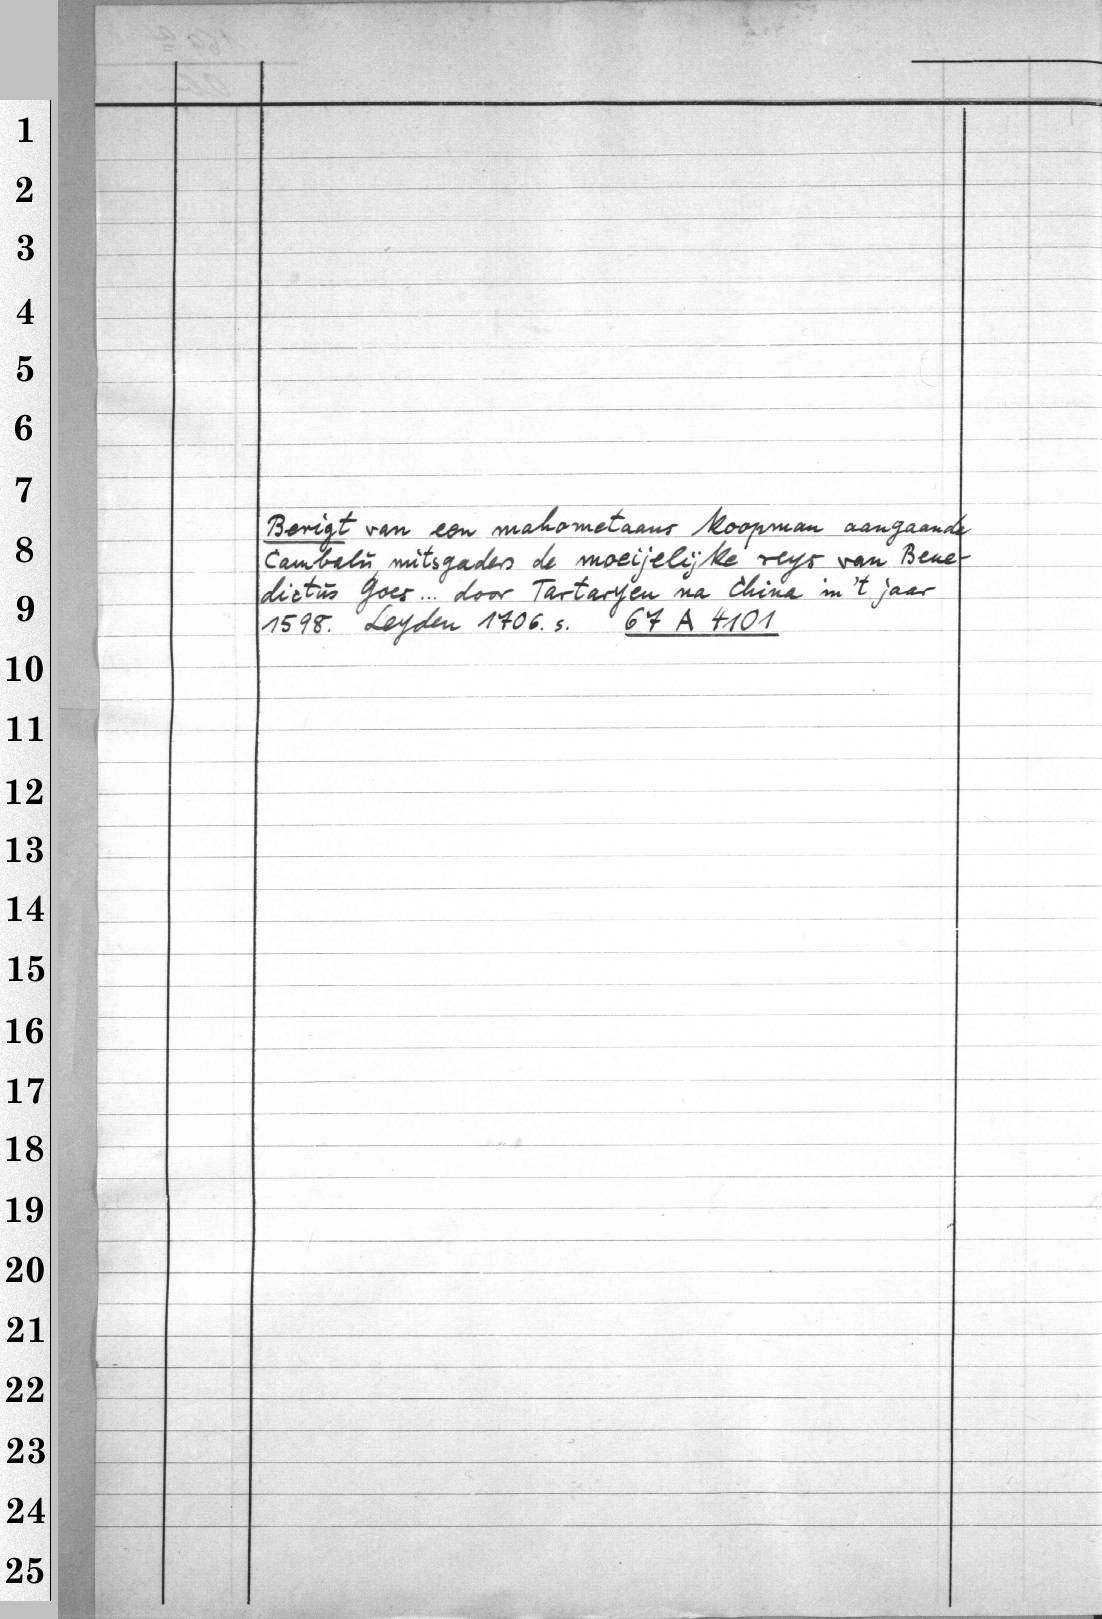 1
2
3
4
5
6
7
8
9
10
11
12
13
14
15
16
17
18
19
20
21
22
23
24
25
Berigt van een mahometaans koopman aangaande
Cambalŭ mitsgaders de moeijelijke reys van Bene-
dictŭs Goes... door Tartaryen na China in 't jaar
1598. Leyden 1706. s. 67 A 4101